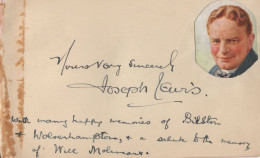 Yours Very Sincerely
Joseph Lewis.
With many happy memories of Bilston
& Wolverhampton, & a salute to the memory
of Will Molineux.